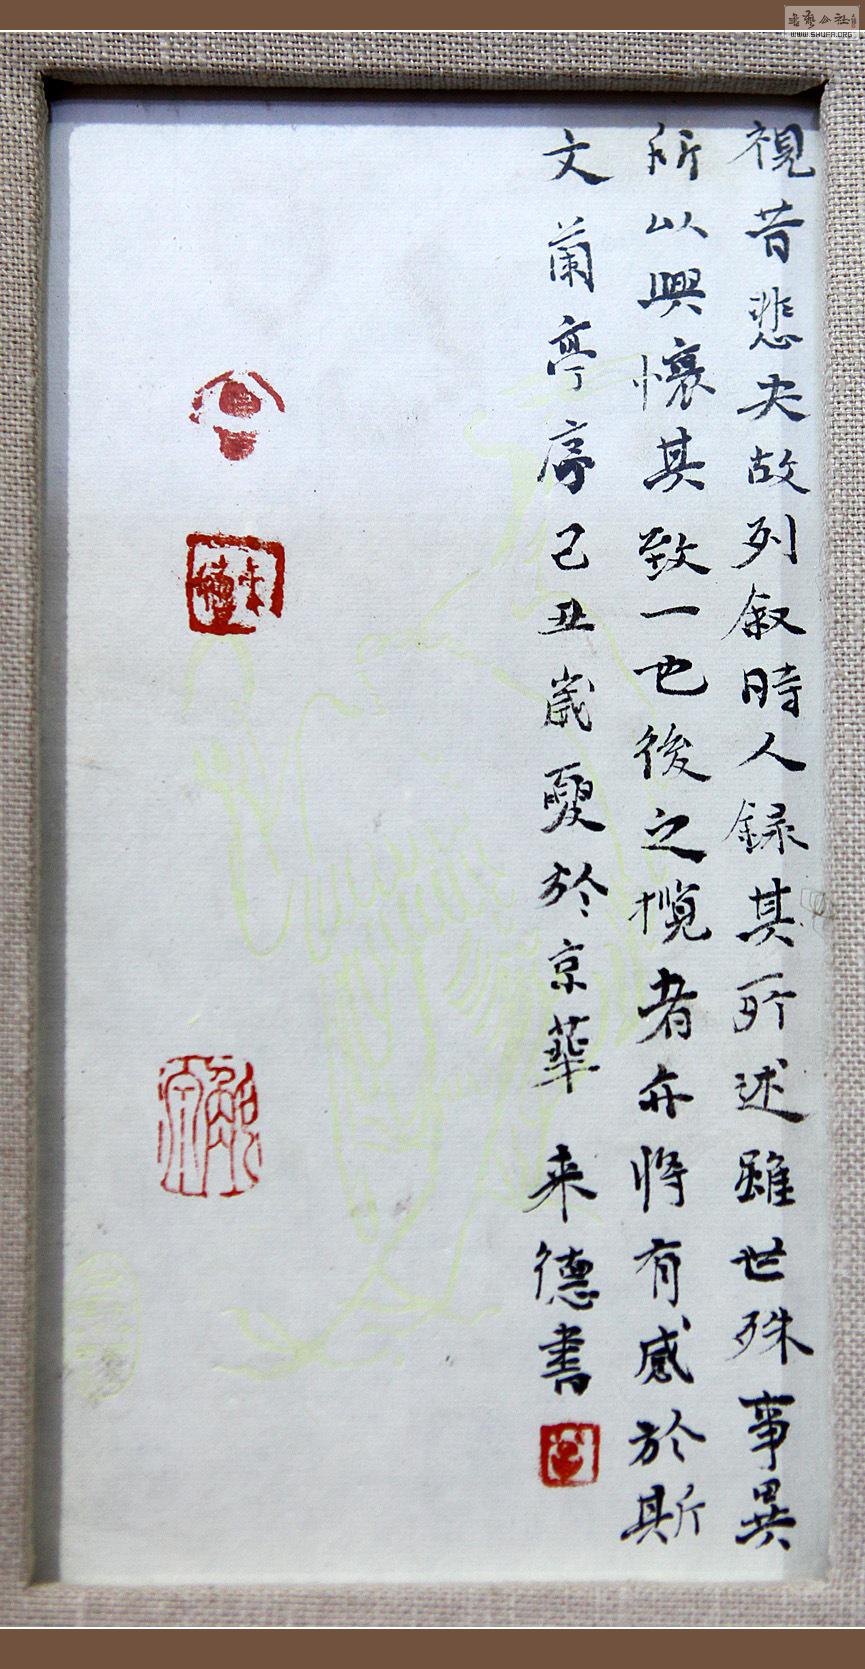 視昔悲夫故列叙時人録其所述雖世殊事異
所以興懷其致一也後之攬者亦将有感於斯
文蘭亭序己丑歲夏於京華 来德書
書艺公社
WWW.SHUFA.ORG